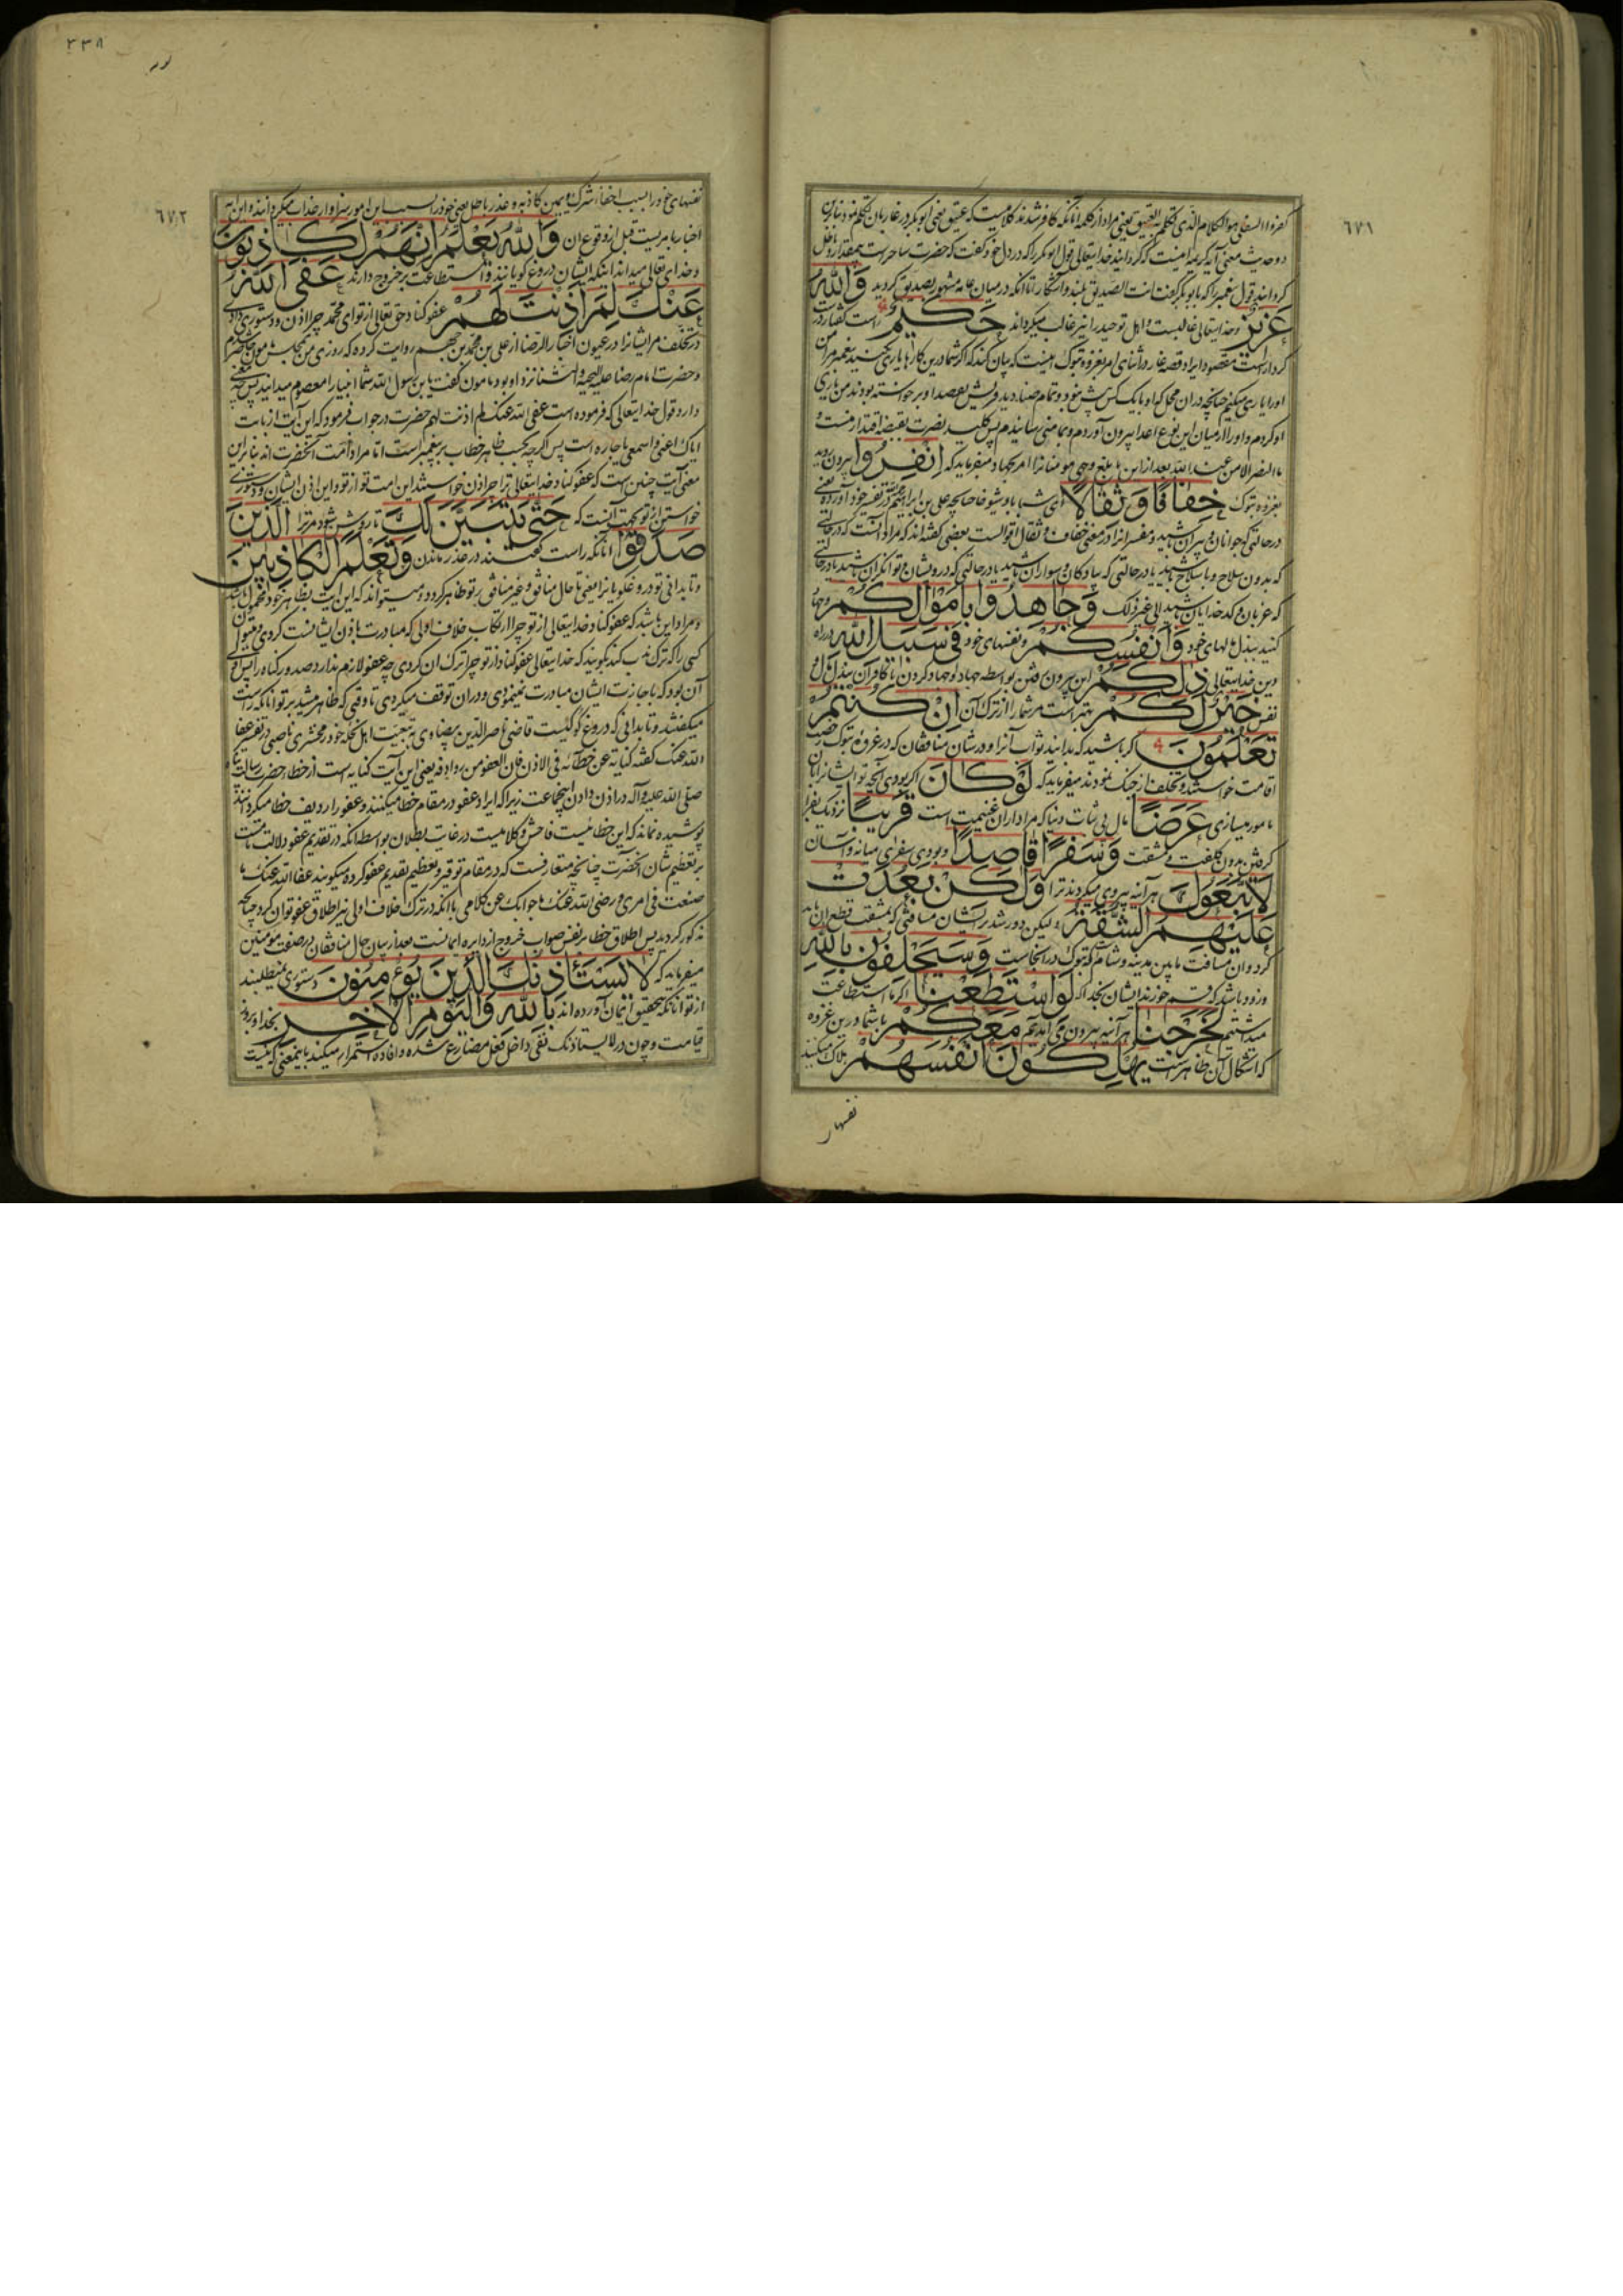 ٦٧١
كفروا السفلى هو الكلام الذى تكلم به العتيق يعنى مراد از كلمه آنانكه كافر شدند كلاميست كه عتيق يعنى ابو بكر در غار بآن تكلم نمود بنابراين
دو حديث معنى آيه كريمه اينست كه كردانيد خدايتعالى قول ابو بكر را كه در دل خود كفت كه حضرت ساحر است
كردانيد قول پيغمبر را كه با بو بكر كفت انت الصديق بلند و آشكار تا آنكه در ميان عامه مشهور بصديق كرديد وَاللّٰهُ
عَزِيزٌ و خدايتعالى غالبست و اهل توحيد را نيز غالب ميكرداند حَكِيمٌ راست كفتار و در
كردار است مقصود از ايراد قصه غار در اثناى امر بغزوه تبوك اينست كه بيان كند كه اكر شما درين كارها يارى نكنيد پيغمبر مرا من
او را يارى ميكنم چنانچه در ان محل كه او با يك كس بيش نبود و تمام صناديد قريش بقصد او برخواسته بودند من يارى
او كردم و او را از ميان اين نوع اعدا بيرون آوردم و بمأمنى رسانيدم پس كليد نصرت بقبضه اقتدار منست و
ما النصر الا من عند الله بعد ازاين بابلغ وجهى مومنانرا امر بجهاد ميفرمايد كه اِنْفِرُوا بيرون رويد
بغزوه تبوك خِفَافًا وَثِقَالًا اى شبابا و شيوخا چنانچه على بن ابراهيم در تفسير خود آورده يعنى
در حالتى كه جوانان و پيران باشيد و مفسرانرا در معنى خفاف و ثقال اقوالست بعضى كفته اند كه مراد آنست كه در حالتى
كه بدون سلاح و با سلاح باشيد يا در حالتى كه پيادكان و سواران باشيد يا در حالتى كه درويشان و توانكران باشيد يا در حالتى
كه عزبان و كدخدايان باشيد الى غير ذلك وَجَاهِدُوا بِأَمْوَالِكُمْ و جهاد
كنيد ببذل مالهاى خود وَأَنْفُسِكُمْ و نفسهاى خود فِي سَبِيلِ اللّٰهِ در راه
دين خدايتعالى ذٰلِكُمْ اين بيرون رفتن بواسطه جهاد و جهاد كردن با كافران ببذل مال و
نفس خَيْرٌ لَكُمْ بهتر است مر شما را از ترك آن اِنْ كُنْتُمْ
تَعْلَمُونَ اكر باشيد كه بدانيد ثواب آنرا و در شان منافقان كه در غزوه تبوك رخصت
اقامت خواستند و تخلف از جنك نمودند ميفرمايد كه لَوْ كَانَ اكر بودى آنچه تو ايشانرا بآن
مامور ميسازى عَرَضًا مال بى ثبات دنيا كه مراد از ان غنيمت است قَرِيبًا نزديك بفرا
كرفتن بدون كلفت و مشقت وَسَفَرًا قَاصِدًا و بودى سفرى ميانه و آسان
لَاتَّبَعُوكَ هر آينه پيروى ميكردند ترا وَلٰكِنْ بَعُدَتْ
عَلَيْهِمُ الشُّقَّةُ وليكن دور شد بر ايشان مسافتى كه بمشقت قطع آن بايد
كرد و ان مسافت مابين مدينه و شام كه تبوك در انجاست وَسَيَحْلِفُونَ بِاللّٰهِ
و زود باشد كه قسم خورند ايشان بخدا كه لَوِ اسْتَطَعْنَا اكر ما استطاعت
ميداشتيم لَخَرَجْنَا هر آينه بيرون مى آمديم مَعَكُمْ با شما درين غزوه
كه اشكال آن ظاهر است يُهْلِكُونَ أَنْفُسَهُمْ هلاك ميكنند
نفسهاى
٣٣٨
٦٧٢
نفسهاى خود را بسبب اخفاء شرك و يمين كاذبه و عذر باطل يعنى خود را بسبب اين امور سزاوار عذاب ميكردانند و اين آيه
اخبار بامريست قبل از وقوع ان وَاللّٰهُ يَعْلَمُ إِنَّهُمْ لَكَاذِبُونَ
و خداى تعالى ميداند اينكه ايشان دروغ كويانند و استطاعت بر خروج دارند عَفَى اللّٰهُ
عَنْكَ لِمَ أَذِنْتَ لَهُمْ عفو كناد حق تعالى از تو اى محمد چرا اذن و دستورى دادى
در تخلف مر ايشانرا در عيون اخبار الرضا از على بن محمد بن جهم روايت كرده كه روزى من بمجلس مامون حاضر شدم
و حضرت امام رضا عليه التحية و الثنا نزد او بود مامون كفت يابن رسول الله شما انبيا را معصوم ميدانيد پس چه معنى
دارد قول خدايتعالى كه فرموده است عفى الله عنك لم اذنت لهم حضرت در جواب فرمود كه اين آيت از بابت
اياك اعنى و اسمعى يا جاره است پس اكرچه بحسب ظاهر خطاب بر پيغمبر است اما مراد امت آنحضرت اند بنابراين
معنى آيت چنين است كه عفو كناد خدايتعالى ترا چرا اذن خواستند اين امت تو از تو و اين اذن ايشان و دستورى
خواستن از تو بجهت آنست كه حَتَّى يَتَبَيَّنَ لَكَ تا روشن شود مر ترا الَّذِينَ
صَدَقُوا آنانكه راست كفتند در عذر ماندن وَتَعْلَمَ الْكَاذِبِينَ
و تا بدانى تو دروغ كويانرا يعنى تا حال منافق و غير منافق بر تو ظاهر كردد و ميتواند كه اين آيت بظاهر خود محمول باشد
و مراد اين باشد كه عفو كناد خدايتعالى از تو چرا ارتكاب خلاف اولى كه مبادرت باذن ايشانست كردى
كسى را كه ترك ندب كند بكويند كه خدايتعالى عفو كناد از تو چرا ترك ان كردى چه عفو لازم ندارد صدور كناه را پس اولى
آن بود كه باجازت ايشان مبادرت نمينمودى و در ان توقف ميكردى تا وقتى كه ظاهر ميشد بر تو آنانكه راست
ميكفتند و تا بدانى كه دروغ كو كيست قاضى ناصر الدين بيضاوى به تبعيت اهل نحله خود زمخشرى ناصبى در تفسير عفا
الله عنك كفته كناية عن خطائه فى الاذن فان العفو من روادفه يعنى اين آيت كنايه است از خطاء حضرت رسالت پناه
صلى الله عليه و آله در اذن دادن اين جماعت زيرا كه ايراد عفو در مقام خطا ميكنند و عفو را رديف خطا ميكردانند
پوشيده نماند كه اين خطائيست فاحش و كلاميست در غايت بطلان بواسطه آنكه در تقديم عفو دلالت تامست
بر تعظيم شان آنحضرت چنانچه متعارفست كه در مقام توقير و تعظيم تقديم عفو كرده ميكويند عفا الله عنك ما
صنعت فى امرى و رضى الله عنك ما جوابك عن كلامى با آنكه در ترك خلاف اولى نيز اطلاق عفو توان كرد چنانچه
مذكور كرديد پس اطلاق خطا بر نفس صواب خروج از دايره ايمانست بعد از بيان حال منافقان در صفت مومنين
ميفرمايد كه لَا يَسْتَأْذِنُكَ الَّذِينَ يُؤْمِنُونَ دستورى نميطلبند
از تو آنانكه بتحقيق ايمان آورده اند بِاللّٰهِ وَالْيَوْمِ الْآخِرِ بخدا و بروز
قيامت و چون در لا يستاذنك نفى داخل فعل مضارع شده و افاده استمرار ميكند باينمعنى كه نيست